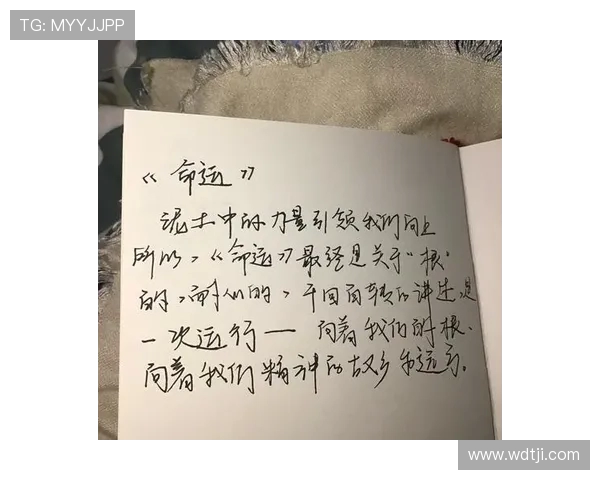 TG: MYYJJPP
《命运》
泥土中的力量引领我们向上
所以，《命运》最终是关于“根”
的，耐人的，千回百转的讲述，是
一次运行— 向着我们的根、
向着我们精神的故乡
www.wdtji.com